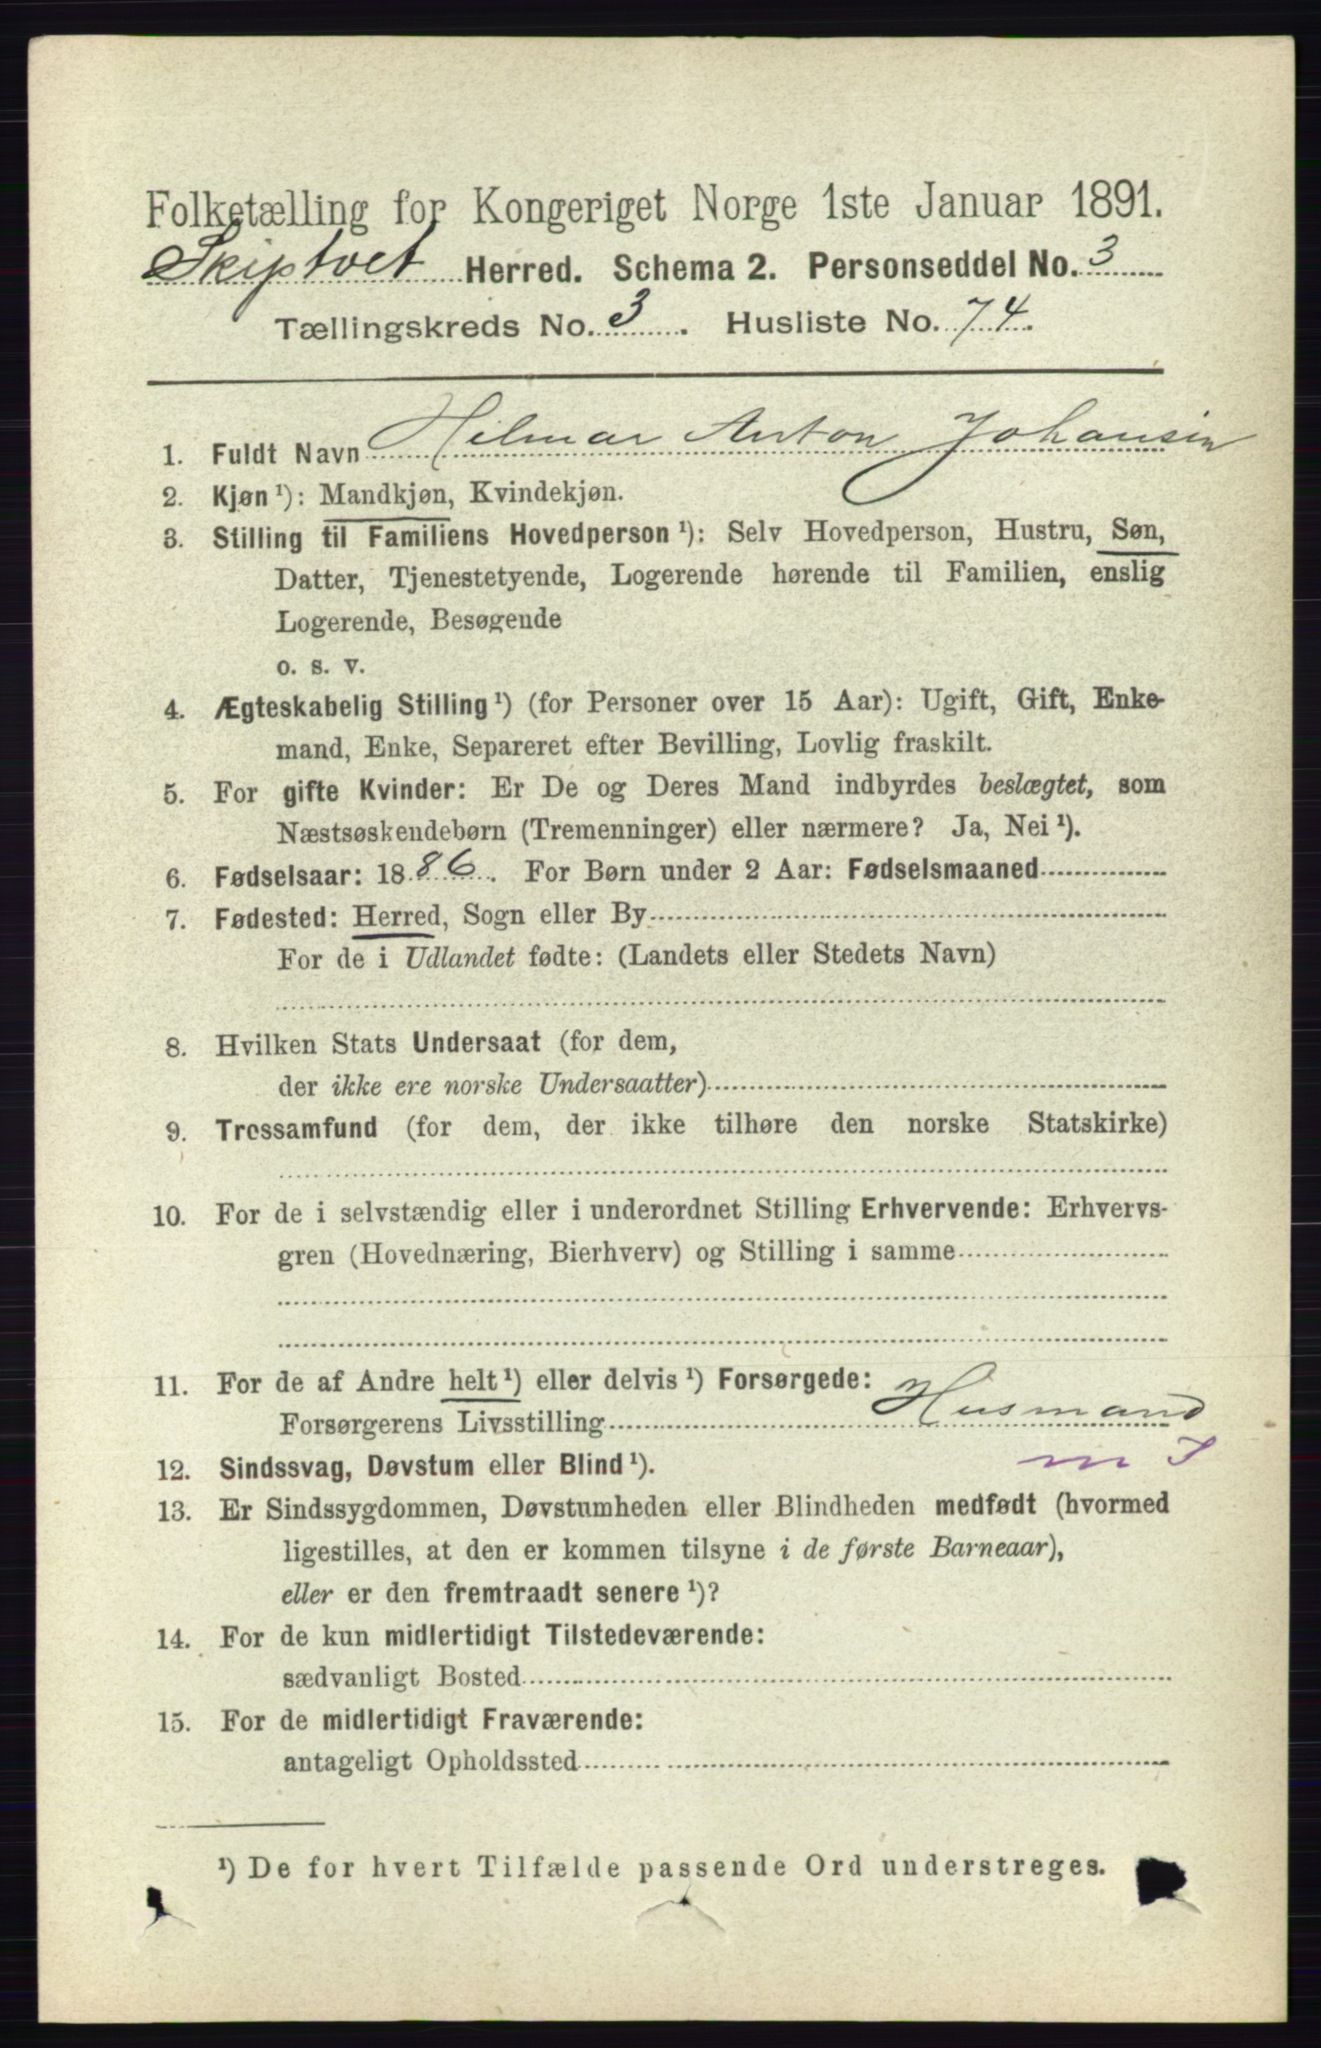 Folketælling for Kongeriget Norge 1ste Januar 1891.
Skiptvet Herred. Schema 2. Personseddel No. 3
Tællingskreds No. 3. Husliste No. 74.
1. Fuldt Navn Hilmar Anton Johansin
2. Kjøn¹): Mandkjøn, Kvindekjøn.
3. Stilling til Familiens Hovedperson¹): Selv Hovedperson, Hustru, Søn,
Datter, Tjenestetyende, Logerende hørende til Familien, enslig
Logerende, Besøgende
o. s. v.
4. Ægteskabelig Stilling¹) (for Personer over 15 Aar): Ugift, Gift, Enke-
mand, Enke, Separeret efter Bevilling, Lovlig fraskilt.
5. For gifte Kvinder: Er De og Deres Mand indbyrdes beslægtet, som
Næstsøskendebørn (Tremenninger) eller nærmere? Ja, Nei¹).
6. Fødselsaar: 1886. For Børn under 2 Aar: Fødselsmaaned
7. Fødested: Herred, Sogn eller By
For de i Udlandet fødte: (Landets eller Stedets Navn)
8. Hvilken Stats Undersaat (for dem,
der ikke ere norske Undersaatter)
9. Trossamfund (for dem, der ikke tilhøre den norske Statskirke)
10. For de i selvstændig eller i underordnet Stilling Erhvervende: Erhvervs-
gren (Hovednæring, Bierhverv) og Stilling i samme
11. For de af Andre helt¹) eller delvis¹) Forsørgede:
Forsørgerens Livsstilling Husmand
12. Sindssvag, Døvstum eller Blind¹).
13. Er Sindssygdommen, Døvstumheden eller Blindheden medfødt (hvormed
ligestilles, at den er kommen tilsyne i de første Barneaar),
eller er den fremtraadt senere¹)?
14. For de kun midlertidigt Tilstedeværende:
sædvanligt Bosted
15. For de midlertidigt Fraværende:
antageligt Opholdssted
¹) De for hvert Tilfælde passende Ord understreges.